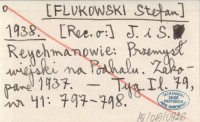 [FLUKOWSKI Stefan]
1938. [Rec. o:] J. i S.
Reychmanowie: Przemysł
wiejski na Podhalu. Zako-
pane 1937. — Tyg. Il. 79,
nr 41: 797-798.